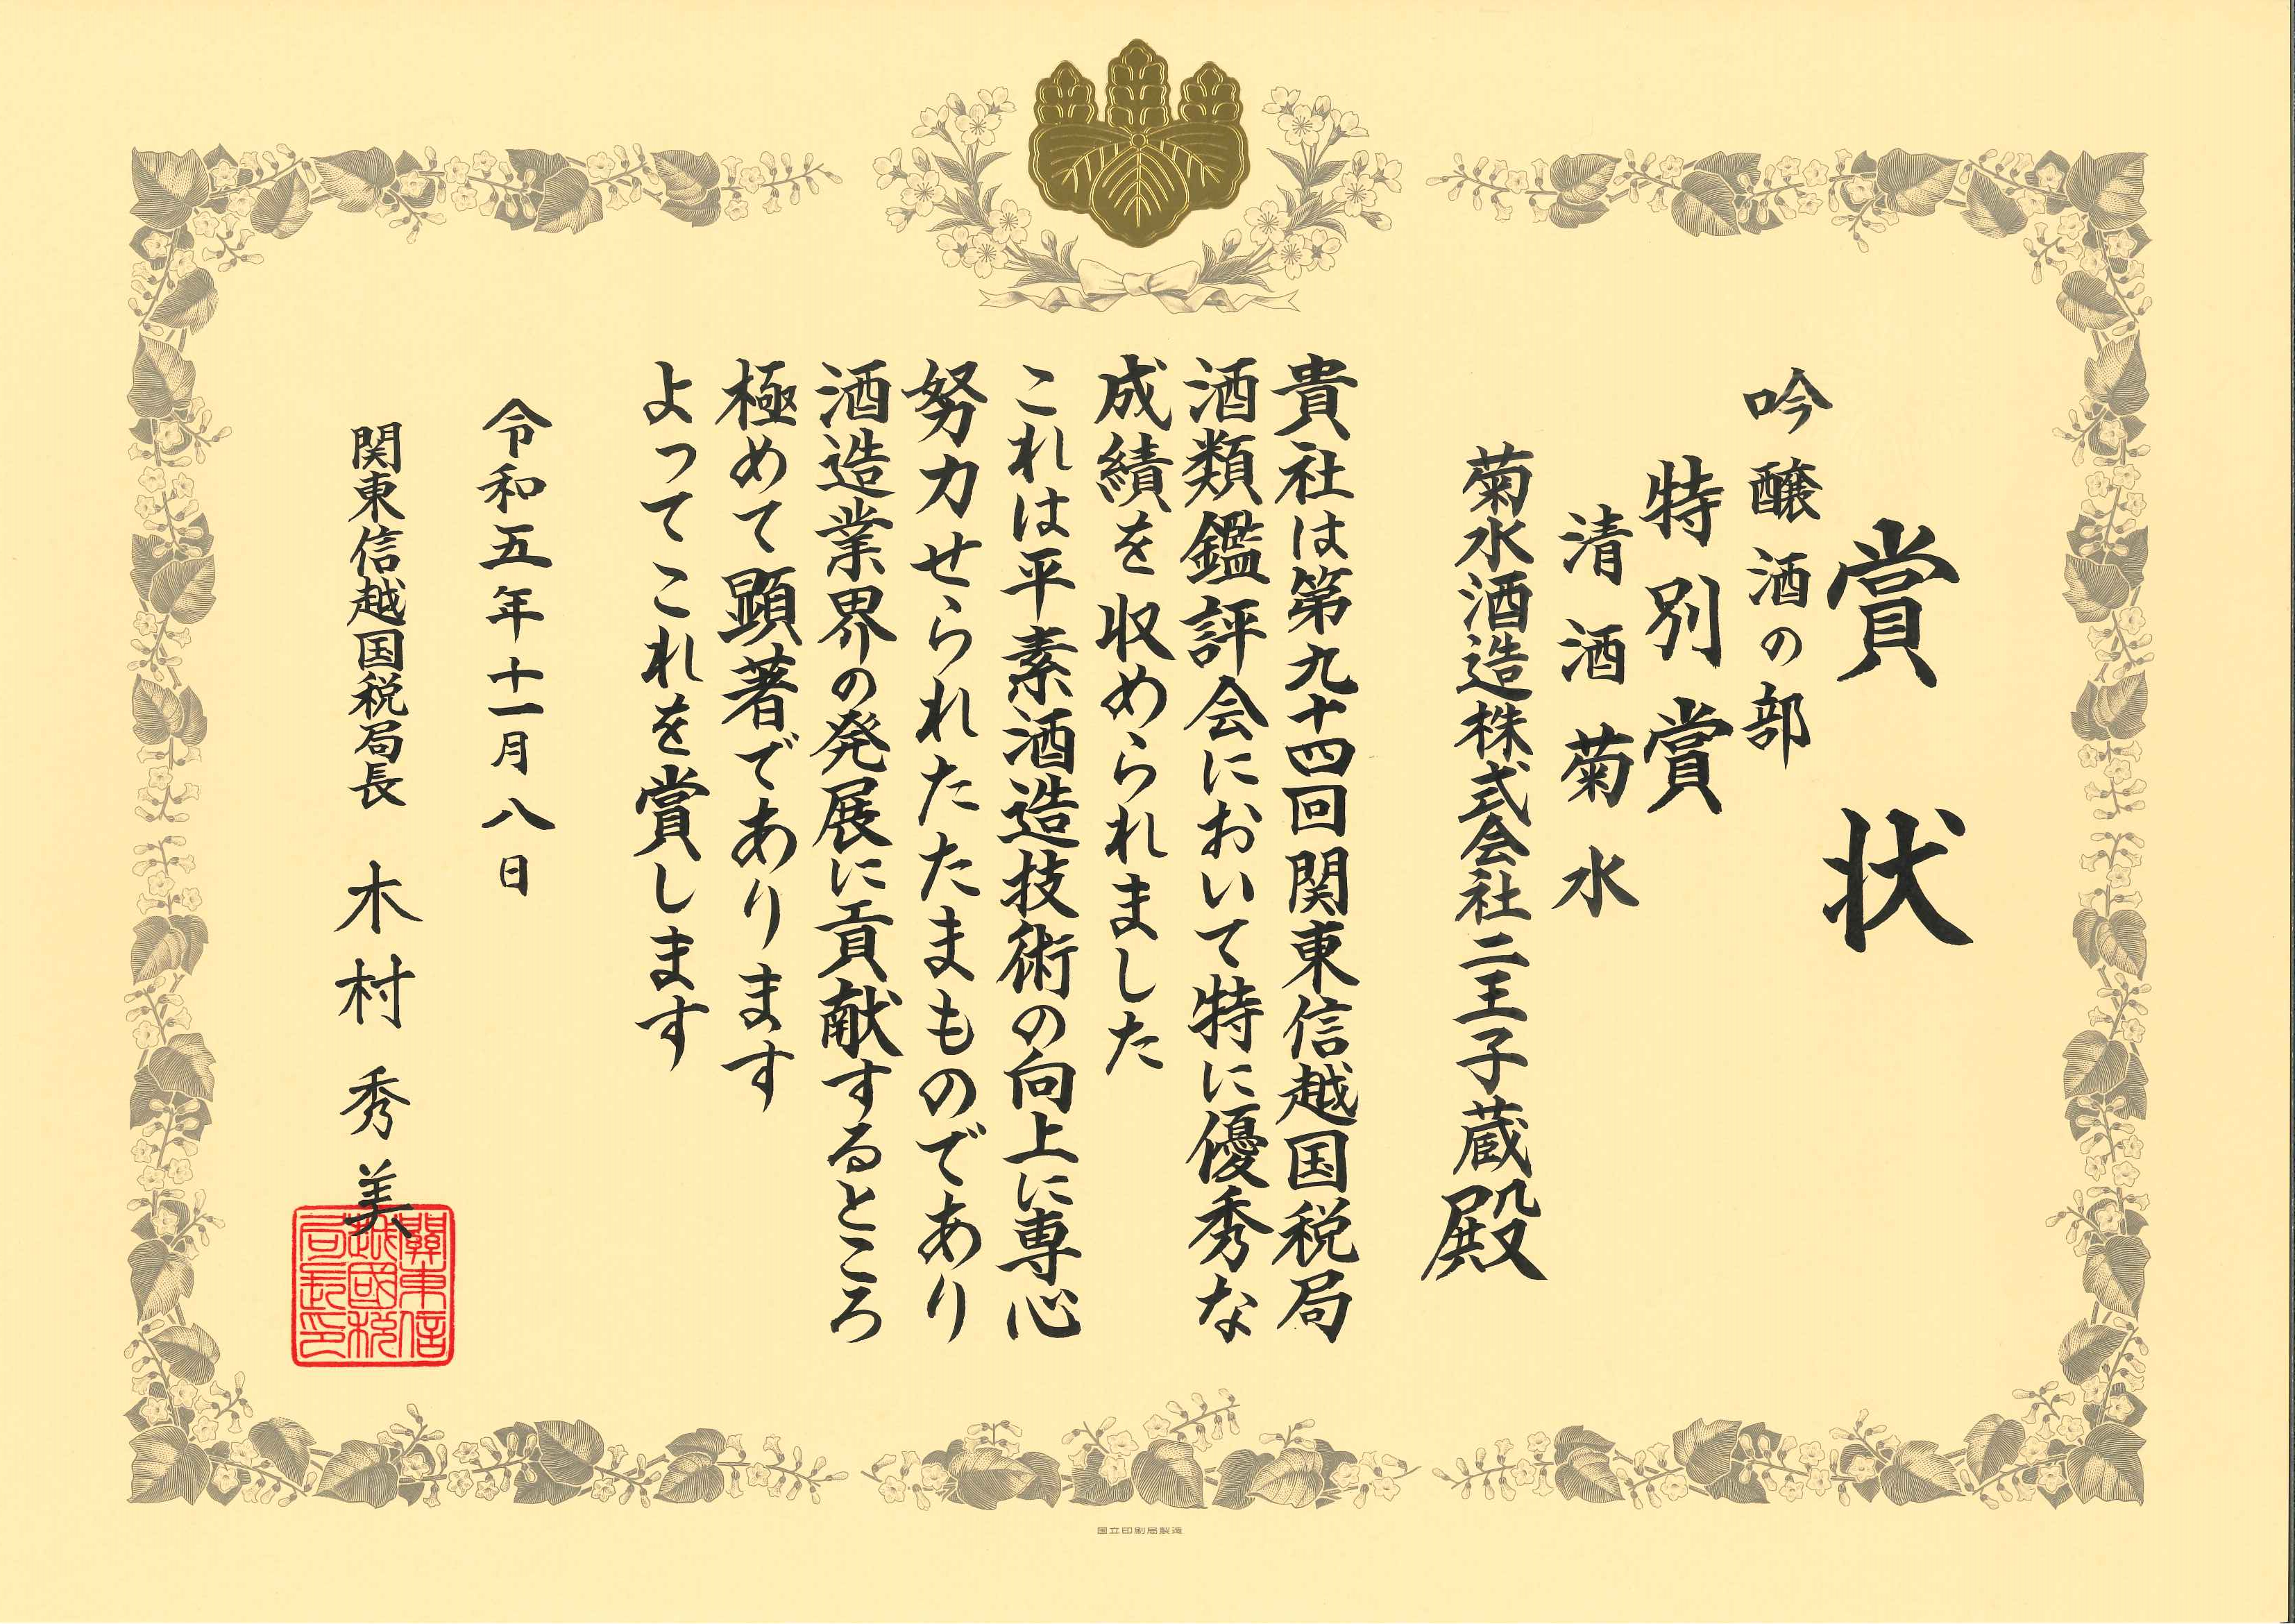 賞状
吟醸酒の部
特別賞
清酒 菊水
菊水酒造株式会社二王子蔵殿
貴社は第九十四回関東信越国税局
酒類鑑評会において特に優秀な
成績を収められました
これは平素酒造技術の向上に専心
努力せられたたまものであり
酒造業界の発展に貢献するところ
極めて顕著であります
よってこれを賞します
令和五年十一月八日
関東信越国税局長 木村秀美
關東信越國税局長印
国立印刷局製造